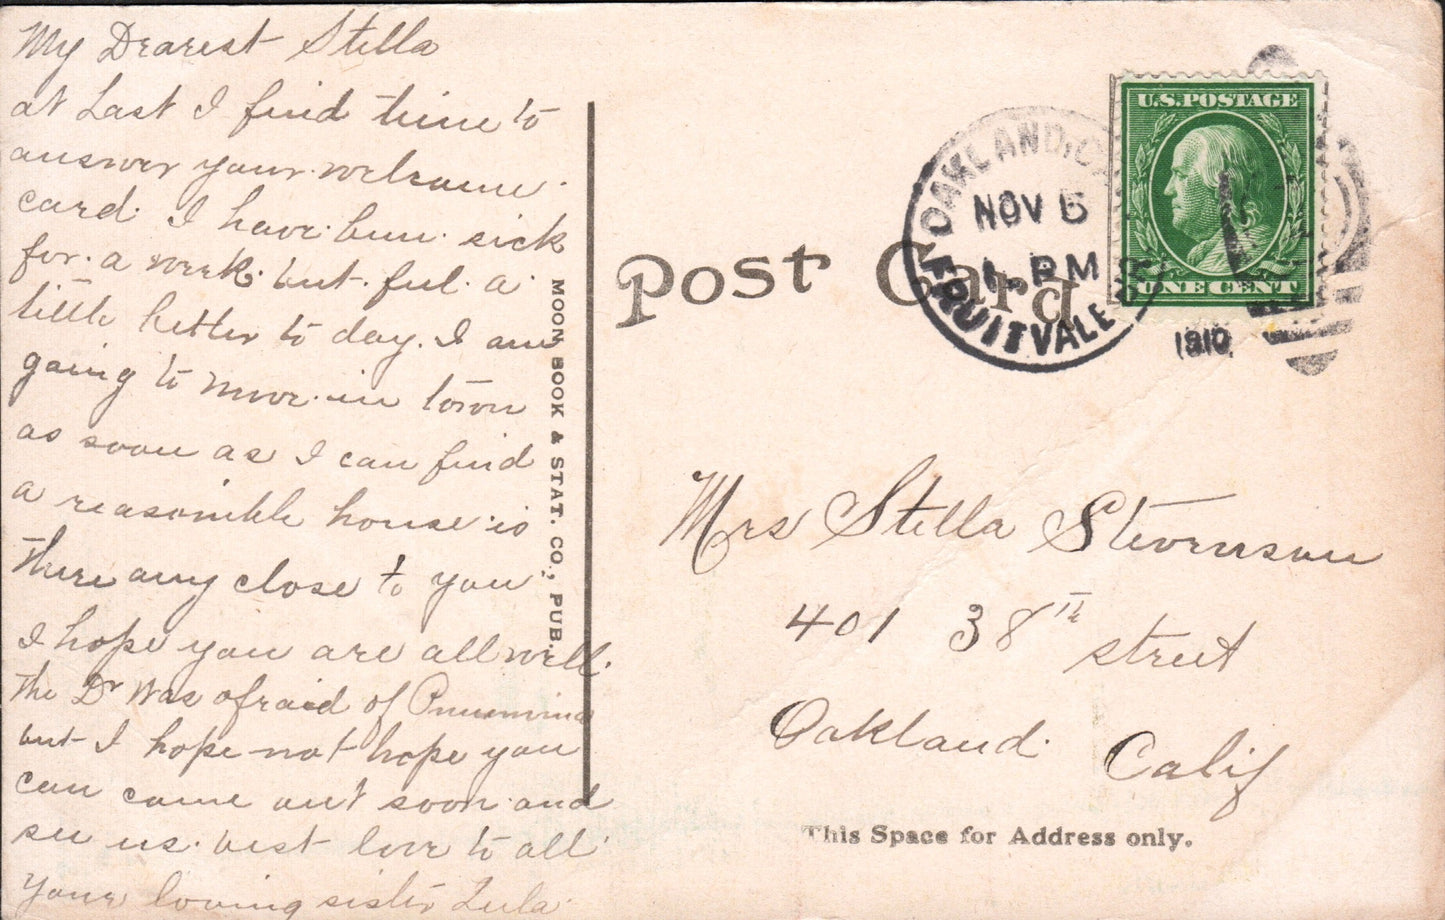 My Dearest Stella
at Last I find time to
answer your welcome
card. I have been sick
for a week but feel a
little better to day. I am
going to move in town
as soon as I can find
a reasonible house is
there any close to you
I hope you are all well.
The Dr Was afraid of Pnuemina
but I hope not hope you
can come out soon and
see us. best love to all
Your loving sister Lula
MOON BOOK & STAT. CO., PUB.
Post Card
OAKLAND, C
NOV 5
1- PM
FRUITVALE
1910
U.S. POSTAGE
ONE CENT
Mrs Stella Stevenson
401 38th street
Oakland Calif
This Space for Address only.